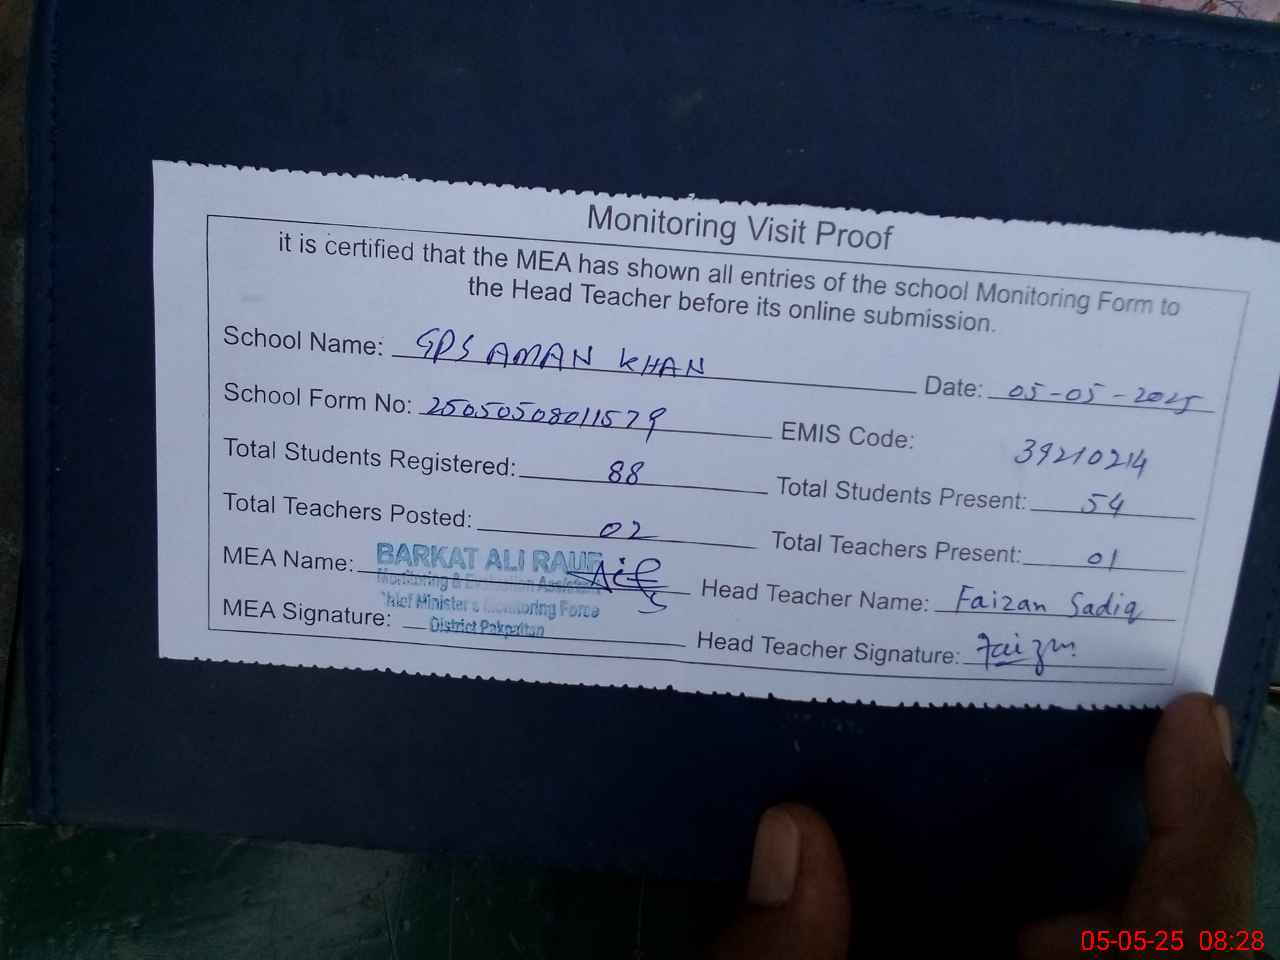 Monitoring Visit Proof
it is certified that the MEA has shown all entries of the school Monitoring Form to
the Head Teacher before its online submission.
School Name: GPS AMAN KHAN Date: 05-05-2025
School Form No: 25050508011579 EMIS Code: 39210214
Total Students Registered: 88 Total Students Present: 54
Total Teachers Posted: 02 Total Teachers Present: 01
MEA Name: BARKAT ALI RAUF Head Teacher Name: Faizan Sadiq
Monitoring & Evaluation Assistant
Chief Minister's Monitoring Force
District Pakpattan
MEA Signature: Head Teacher Signature: Faizan
05-05-25 08:28